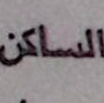 الساكن